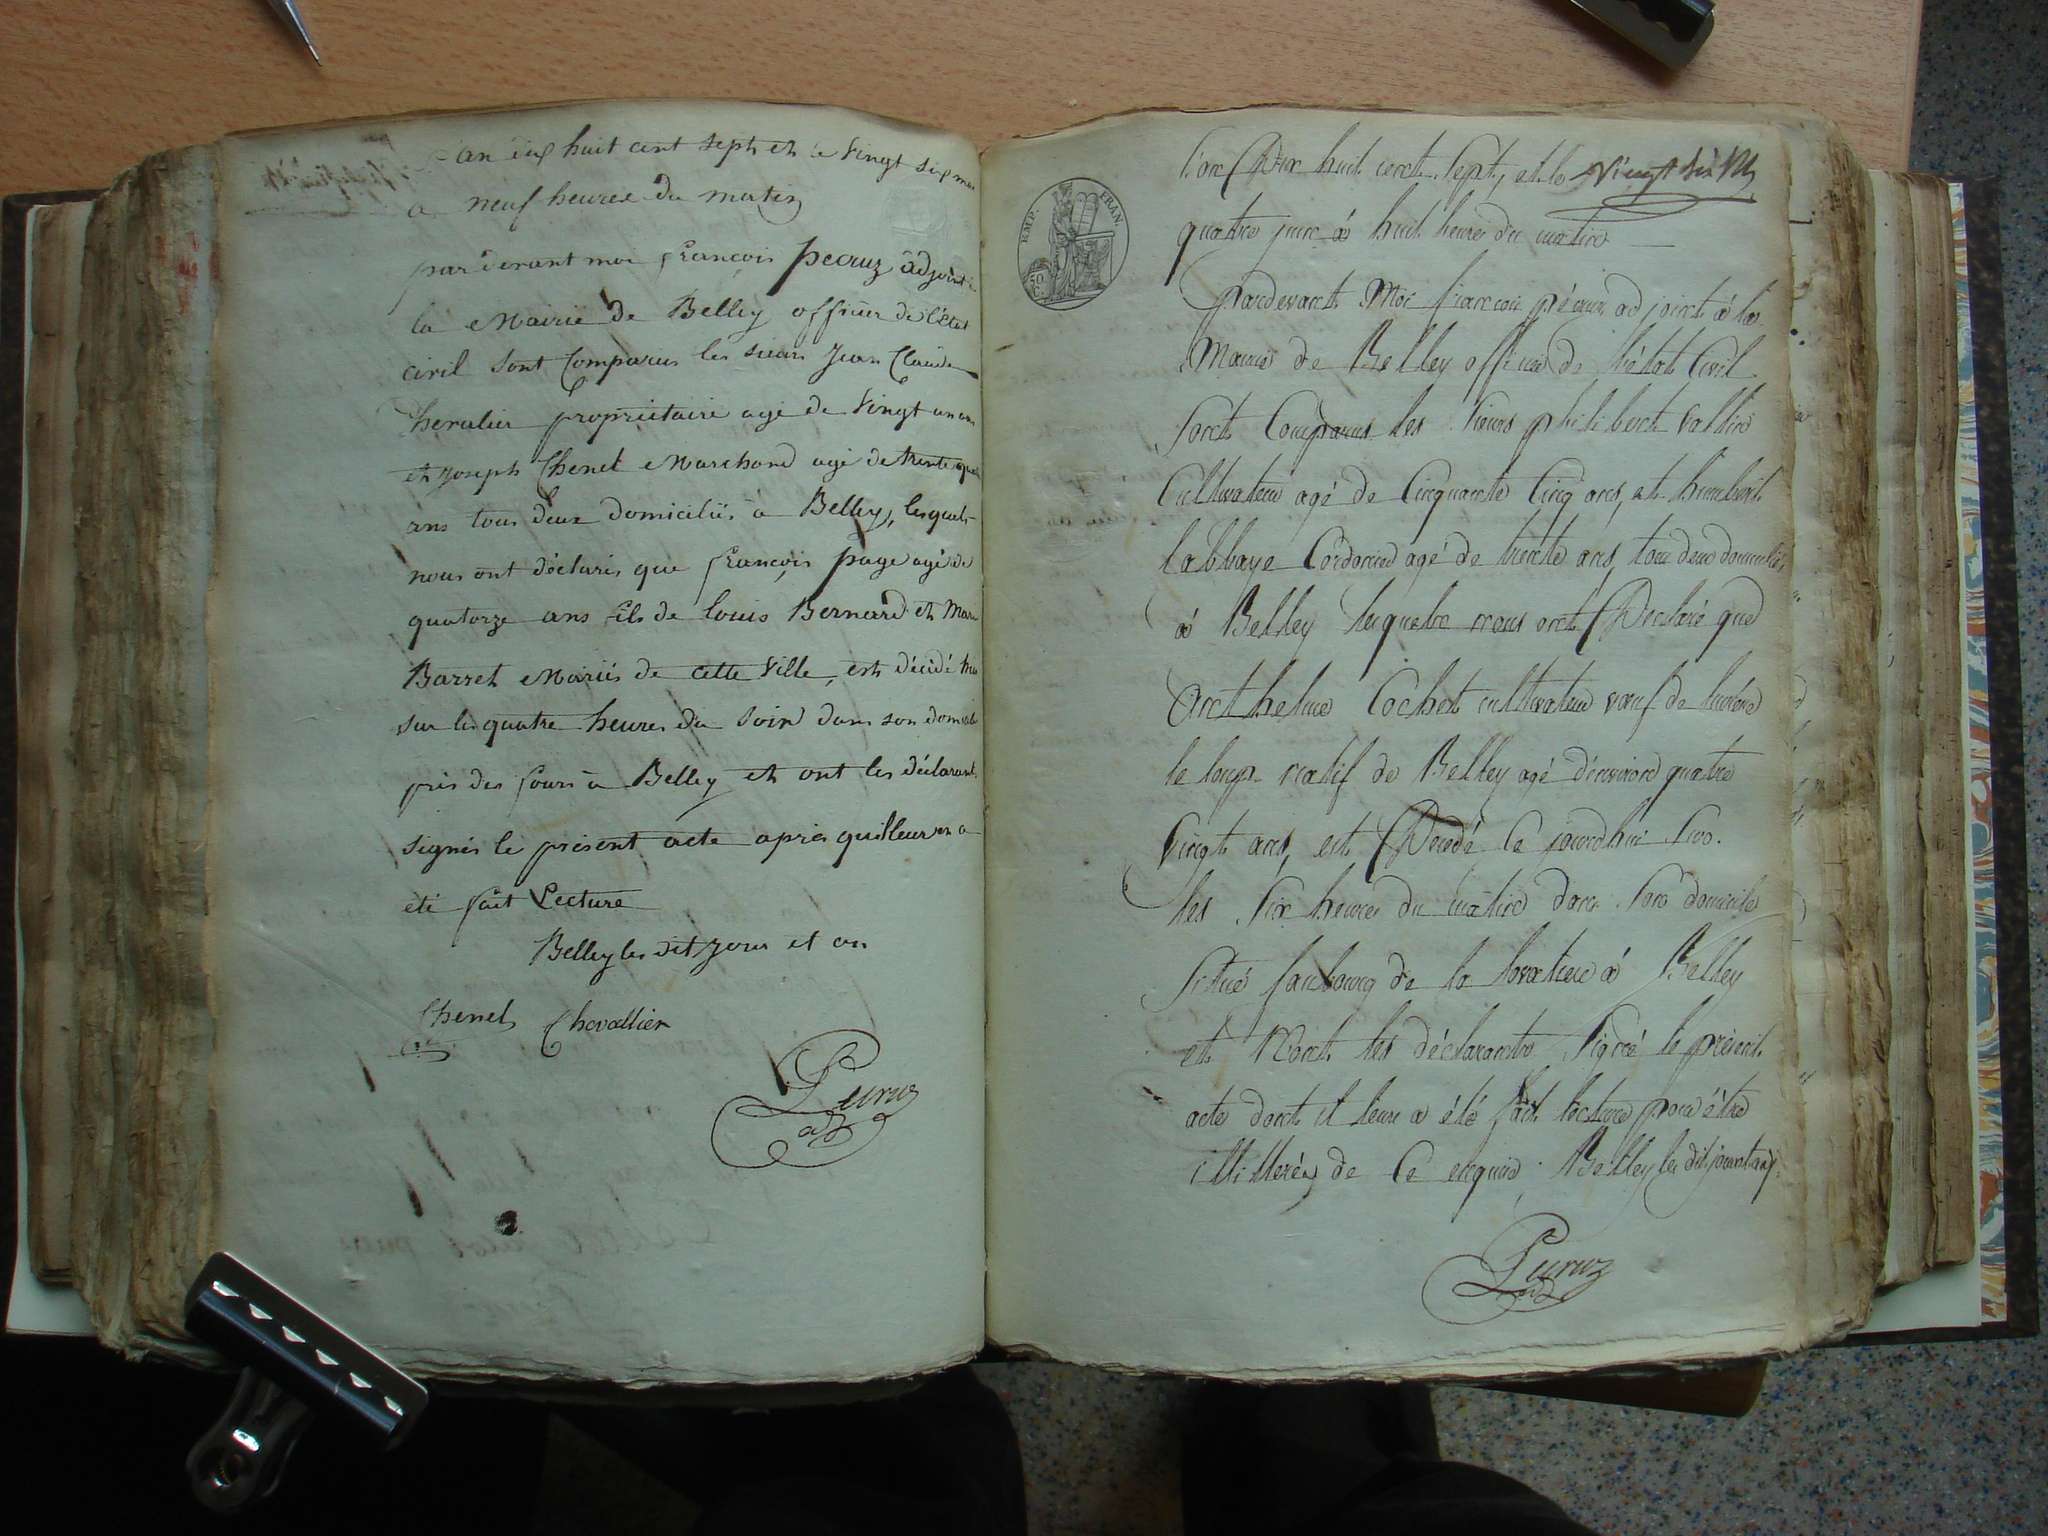 L'an dix huit cent sept et le vingt six mai
a neuf heures du matin
par devant moi françois pecruz adjoint à
la Mairie de Belley officier de l'état
civil sont Comparus les sieurs Jean Claude
Chevalier propriétaire agé de vingt un ans
et Joseph Chenet Marchand agé de trente quatre
ans tous deux domiciliés à Belley, lesquels
nous ont déclarés que françois page agé de
quatorze ans fils de Louis Bernard et Marie
Barret Mariés de cette ville, est décédé hier
sur les quatre heures du soir dans son domicile
près des fours à Belley et ont les déclarants
signés le présent acte après qu'il leur en a
été fait Lecture
Belley les dit jour et an
Chenet Chevallier
Pecruz
adj
E M P. FRAN.
50 C.
L'an Dix huit cent Sept, et le vingt six
quatre juin à huit heures du matin
Pardevant Moi françois pécruz adjoint à la
Mairie de Belley officier de l'état Civil
Sont Comparus les Sieurs philibert vallin
Cultivateur agé de Cinquante Cinq ans, et humbert
Labbaye Cordonnier agé de trente ans, tous deux domiciliés
à Belley lesquels nous ont Déclaré que
Anthelme Cochet cultivateur veuf de
le loup natif de Belley agé d'environ quatre
vingt ans, est Décédé Ce jourd'hui Sur
les Six heures du matin dans Son domicile
Situé faubourg de la à Belley
et N'ont les déclarants Signé le présent
acte dont il leur a été fait lecture pour être
illitérés de Ce enquis. Belley les dit jour et an
Pecruz
adj